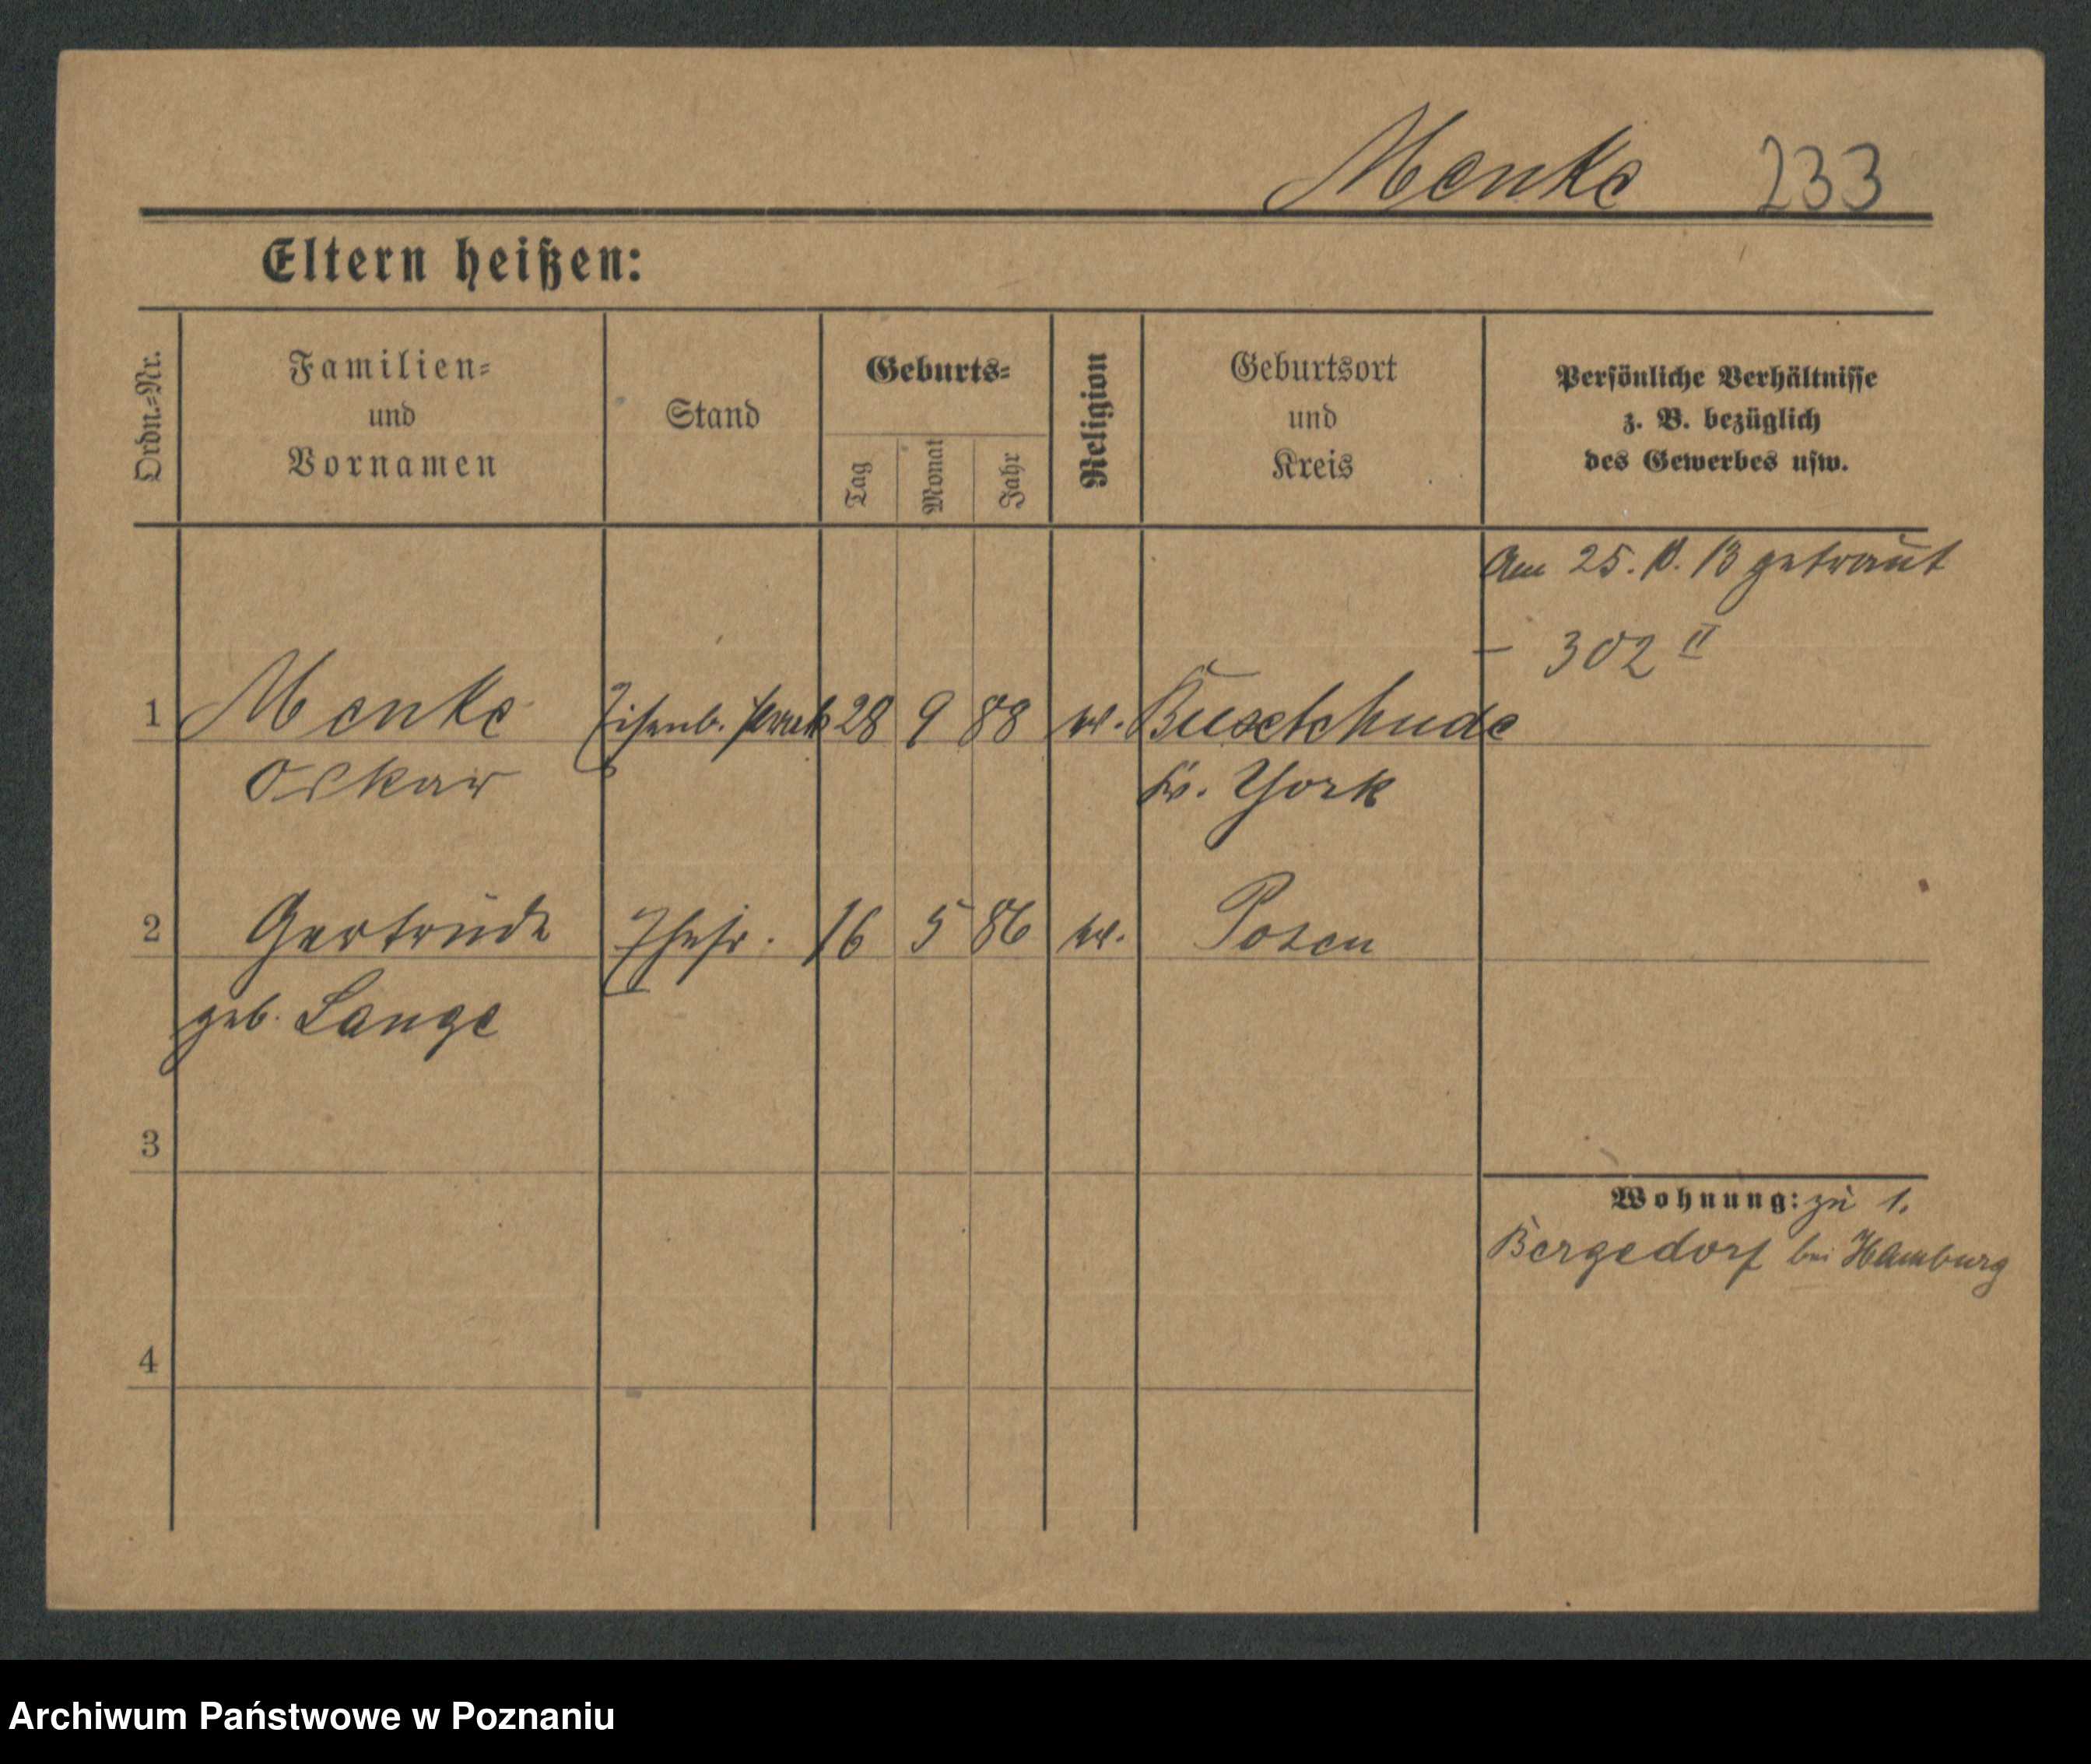 Menke 233
Eltern heißen:
Ordn.-Nr.
Familien-
und
Vornamen
Stand
Geburts-
Tag
Monat
Jahr
Religion
Geburtsort
und
Kreis
Persönliche Verhältnisse
z. B. bezüglich
des Gewerbes usw.
Am 25. 10. 13 getraut
– 302 II
1 Menke Eisenb. 28 9 88 ev. Buxtehude
Oskar Kr. York
2 Gertrude Ehefr. 16 5 86 ev. Posen
geb. Lange
3
Wohnung: zu 1.
Bergedorf bei Hamburg
4
Archiwum Państwowe w Poznaniu